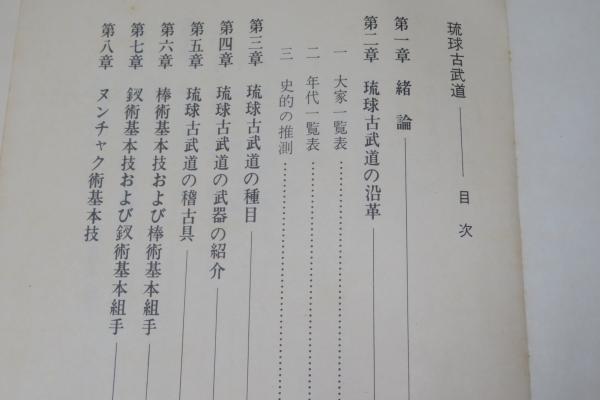 琉球古武道 ―― 目次
第一章 緒論
第二章 琉球古武道の沿革
一 大家一覧表
二 年代一覧表
三 史的の推測
第三章 琉球古武道の種目
第四章 琉球古武道の武器の紹介
第五章 琉球古武道の稽古具
第六章 棒術基本技および棒術基本組手
第七章 釵術基本技および釵術基本組手
第八章 ヌンチャク術基本技